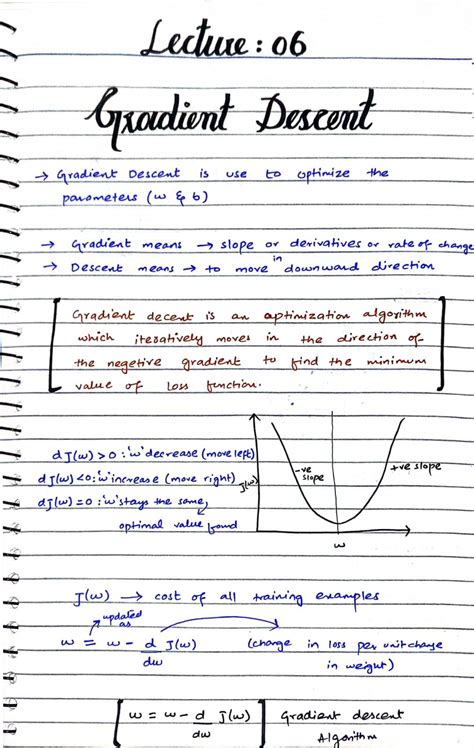 Lecture : 06
Gradient Descent
→ Gradient Descent is use to optimize the
parameters (w & b)
→ Gradient means → slope or derivatives or rate of change
→ Descent means → to move in downward direction
Gradient decent is an optimization algorithm
which iteratively moves in the direction of
the negetive gradient to find the minimum
value of loss function.
dJ(w) > 0 : 'w' decrease (move left)
dJ(w) < 0 : 'w' increase (move right)
dJ(w) = 0 : 'w' stays the same,
optimal value found
J(w)
-ve
slope
+ve slope
w
J(w) → cost of all training examples
updated
as
w = w - d/dw J(w) (change in loss per unit change
in weight)
w = w - d/dw J(w) Gradient descent
Algorithm